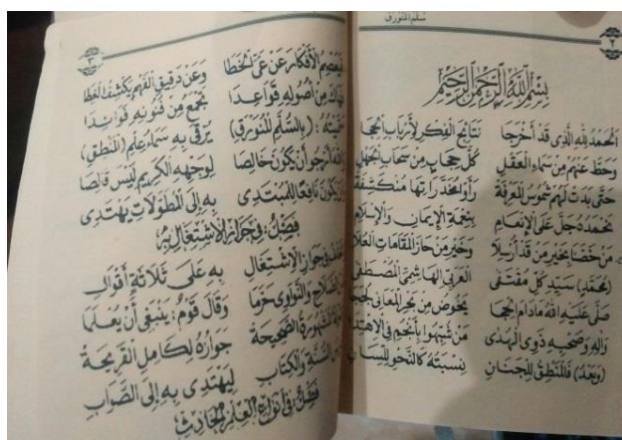 سُلَّم المنورق
٢
بِسْمِ اللَّهِ الرَّحْمَنِ الرَّحِيمِ
الحَمْدُ لِلَّهِ الَّذِي قَدْ أَخْرَجَا نَتَائِجَ الفِكْرِ لِأَرْبَابِ الحِجَا
وَحَطَّ عَنْهُمْ مِنْ سَمَاءِ العَقْلِ كُلَّ حِجَابٍ مِنْ سَحَابِ الجَهْلِ
حَتَّى بَدَتْ لَهُمْ شُمُوسُ المَعْرِفَةْ رَأَوْا مُخَدَّرَاتِهَا مُنْكَشِفَةْ
نَحْمَدُهُ جَلَّ عَلَى الإِنْعَامِ بِنِعْمَةِ الإِيمَانِ وَالإِسْلَامِ
مَنْ خَصَّنَا بِخَيْرِ مَنْ قَدْ أُرْسِلَا وَخَيْرِ مَنْ حَازَ المَقَامَاتِ العُلَا
(مُحَمَّدٍ) سَيِّدِ كُلِّ مُقْتَفَى العَرَبِيِّ الهَاشِمِيِّ المُصْطَفَى
صَلَّى عَلَيْهِ اللهُ مَادَامَ الحِجَا يَخُوضُ مِنْ بَحْرِ المَعَانِي لُجَجَا
وَآلِهِ وَصَحْبِهِ ذَوِي الهُدَى مَنْ شُبِّهُوا بِأَنْجُمٍ فِي الاهْتِدَا
(وَبَعْدُ) فَالمَنْطِقُ لِلْجَنَانِ نِسْبَتُهُ كَالنَّحْوِ لِلِّسَانِ
٣
فَيَعْصِمُ الأَفْكَارَ عَنْ غَيِّ الخَطَا وَعَنْ دَقِيقِ الفَهْمِ يَكْشِفُ الغِطَا
فَهَاكَ مِنْ أُصُولِهِ قَوَاعِدَا تَجْمَعُ مِنْ فُنُونِهِ فَوَائِدَا
سَمَّيْتُهُ : (بِالسُّلَّمِ المُنَوْرَقِ) يُرْقَى بِهِ سَمَاءُ عِلْمِ (المَنْطِقِ)
وَاللهَ أَرْجُو أَنْ يَكُونَ خَالِصَا لِوَجْهِهِ الكَرِيمِ لَيْسَ قَالِصَا
وَأَنْ يَكُونَ نَافِعًا لِلْمُبْتَدِي بِهِ إِلَى المُطَوَّلَاتِ يَهْتَدِي
فَصْلٌ فِي جَوَازِ الاشْتِغَالِ بِهِ
فِي جَوَازِ الاشْتِغَالِ بِهِ عَلَى ثَلَاثَةٍ أَقْوَالِ
الصَّلَاحِ وَالنَّوَاوِي حَرَّمَا وَقَالَ قَوْمٌ : يَنْبَغِي أَنْ يُعْلَمَا
المَشْهُورَةُ الصَّحِيحَةْ جَوَازُهُ لِكَامِلِ القَرِيحَةْ
السُّنَّةِ وَالكِتَابِ لِيَهْتَدِي بِهِ إِلَى الصَّوَابِ
فَصْلٌ فِي أَنْوَاعِ العِلْمِ الحَادِثِ